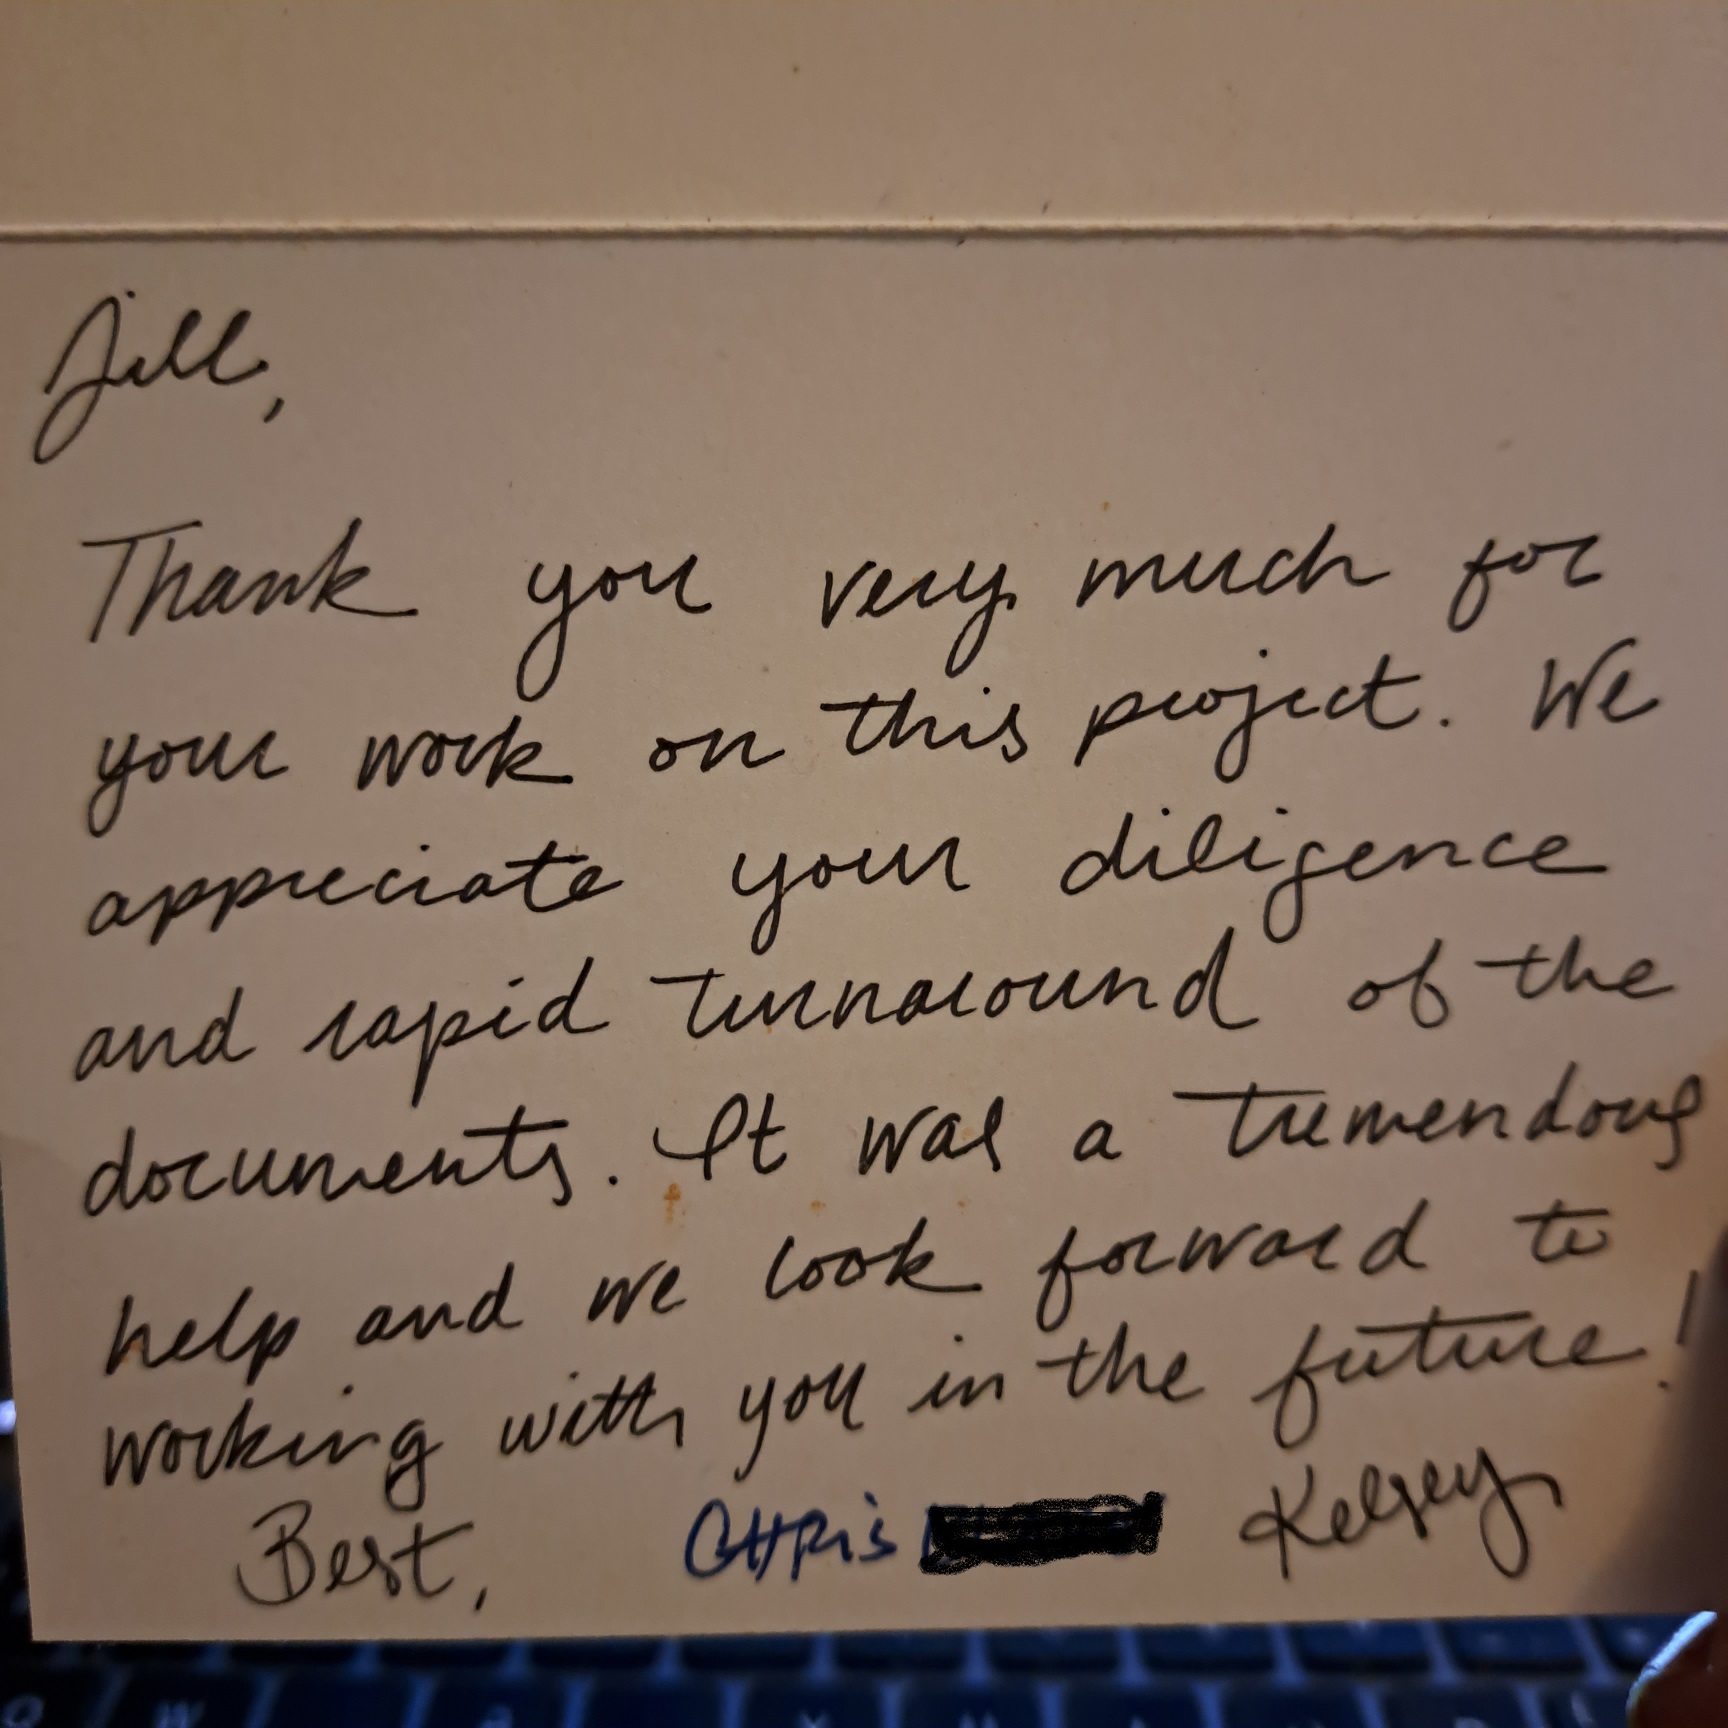 Jill,
Thank you very much for
your work on this project. We
appreciate your diligence
and rapid turnaround of the
documents. It was a tremendous
help and we look forward to
working with you in the future!
Best, CHRis Kelsey